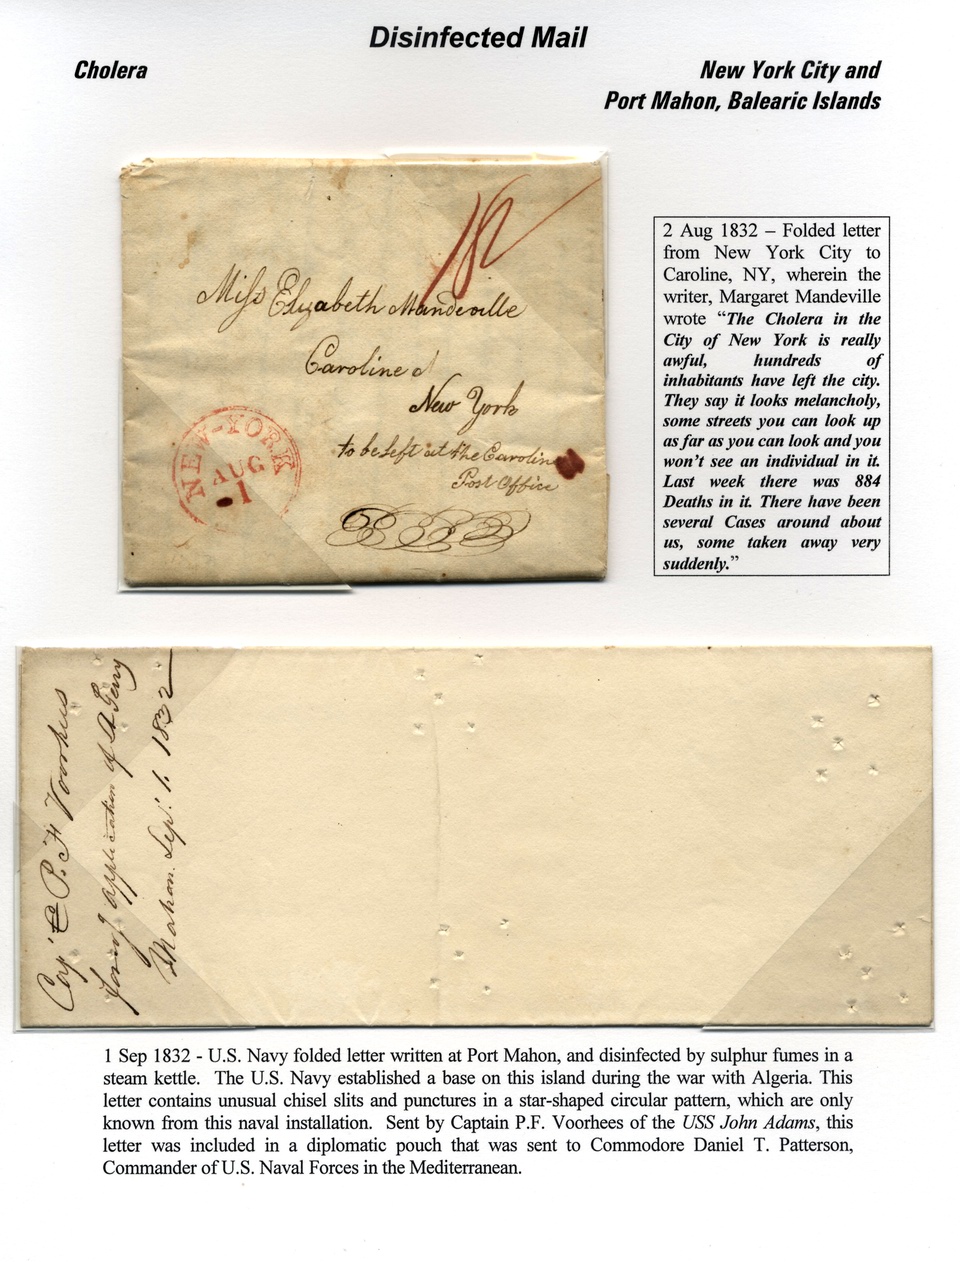 Disinfected Mail
Cholera
New York City and
Port Mahon, Balearic Islands
18
Miss Elizabeth Mandeville
Caroline
New York
to be left at the Caroline
Post Office
NEW-YORK
AUG
1
2 Aug 1832 – Folded letter
from New York City to
Caroline, NY, wherein the
writer, Margaret Mandeville
wrote “The Cholera in the
City of New York is really
awful, hundreds of
inhabitants have left the city.
They say it looks melancholy,
some streets you can look up
as far as you can look and you
won’t see an individual in it.
Last week there was 884
Deaths in it. There have been
several Cases around about
us, some taken away very
suddenly.”
P. F Voorhees
application of A Terry
Mahon. Sep. 1. 1832
1 Sep 1832 - U.S. Navy folded letter written at Port Mahon, and disinfected by sulphur fumes in a
steam kettle. The U.S. Navy established a base on this island during the war with Algeria. This
letter contains unusual chisel slits and punctures in a star-shaped circular pattern, which are only
known from this naval installation. Sent by Captain P.F. Voorhees of the USS John Adams, this
letter was included in a diplomatic pouch that was sent to Commodore Daniel T. Patterson,
Commander of U.S. Naval Forces in the Mediterranean.